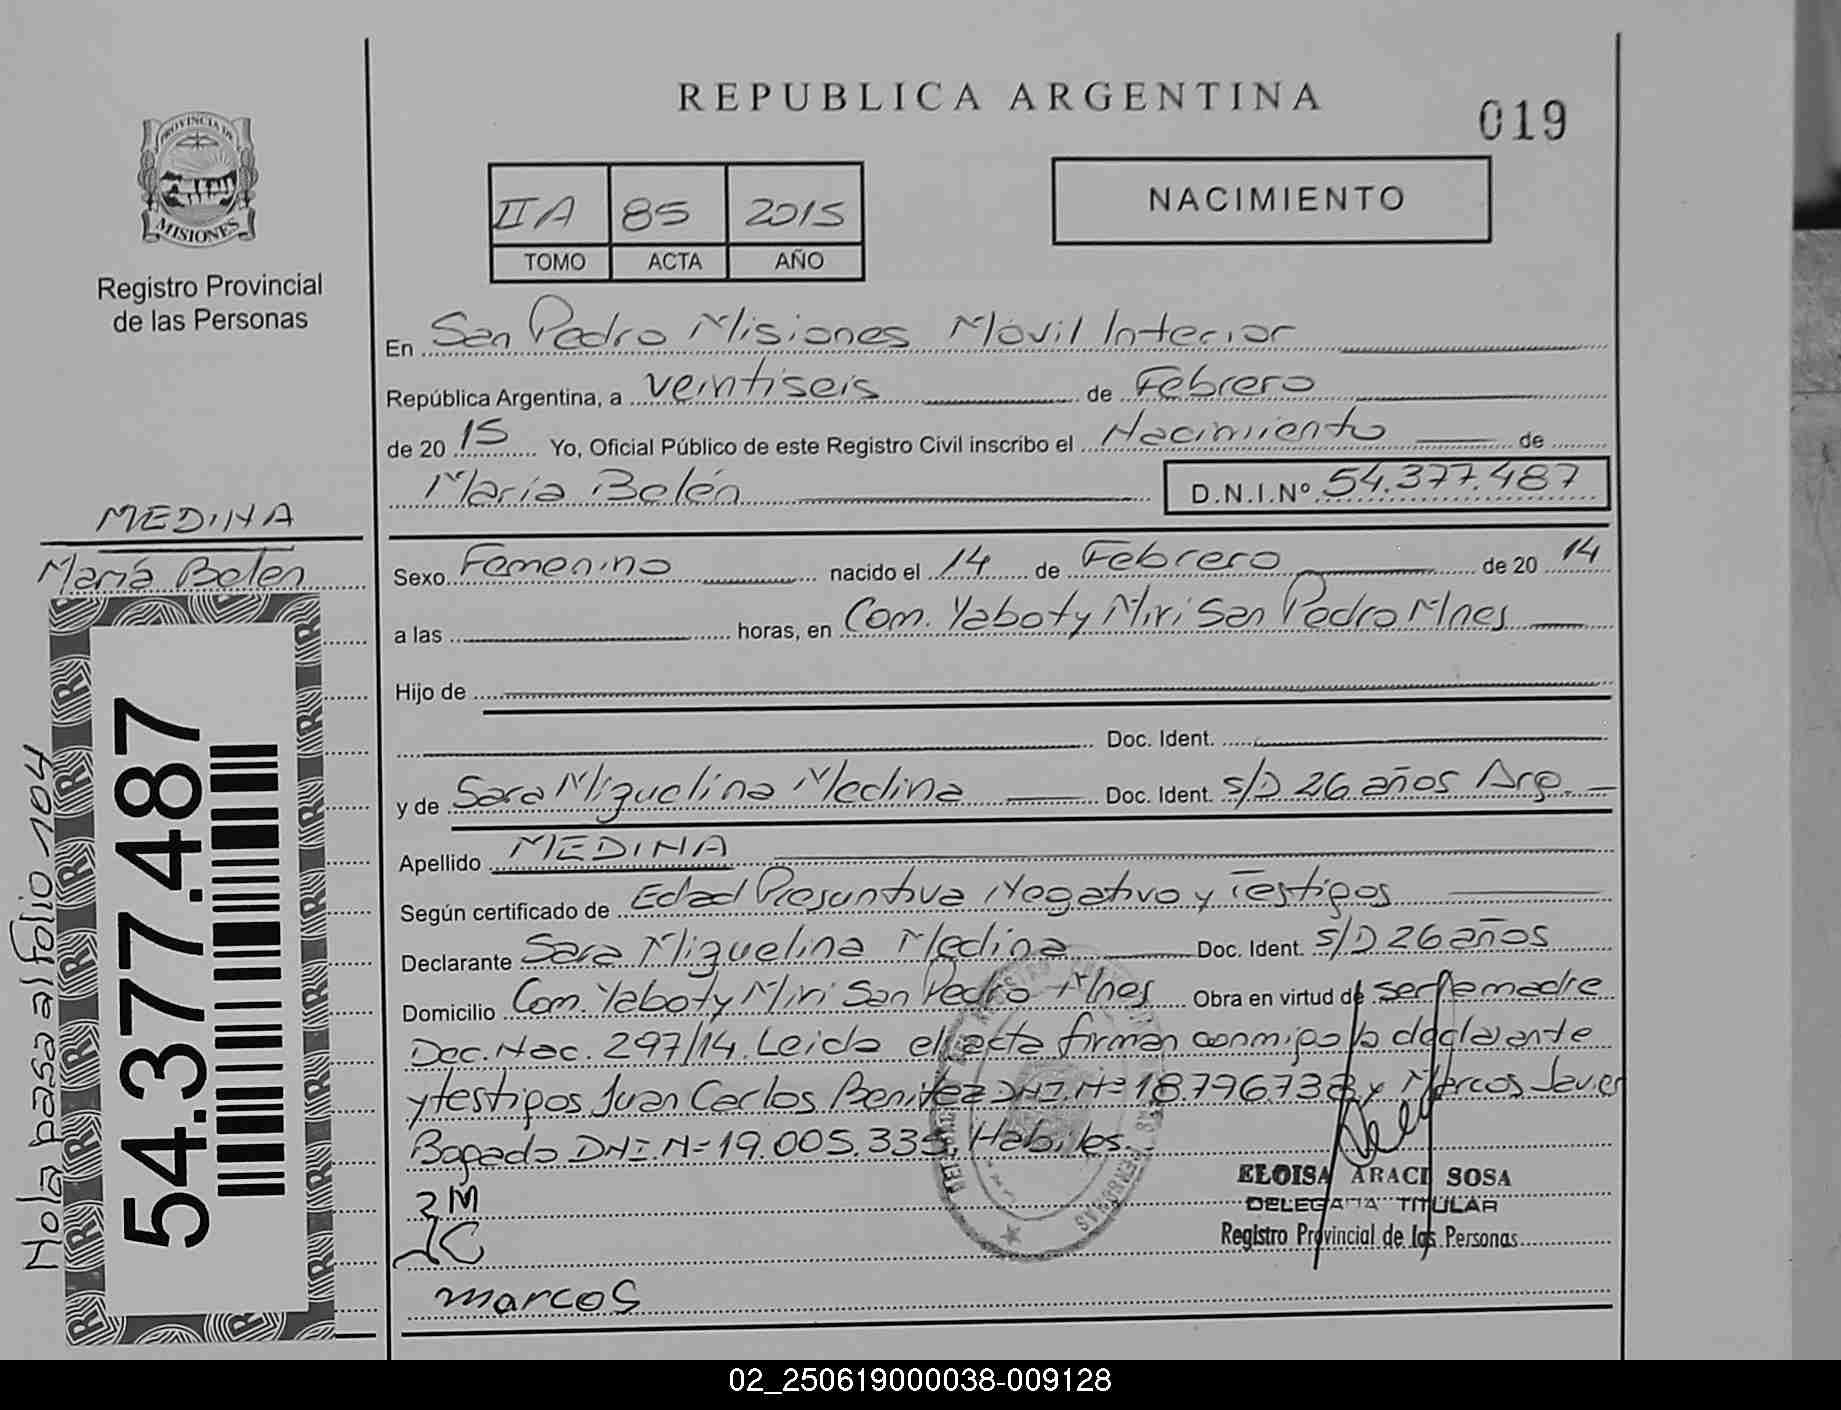 REPUBLICA ARGENTINA
019
PROVINCIA DE
MISIONES
Registro Provincial
de las Personas
IIA 85 2015
TOMO ACTA AÑO
NACIMIENTO
En San Pedro Misiones Móvil Interior
República Argentina, a veintiseis de Febrero
de 2015 Yo, Oficial Público de este Registro Civil inscribo el Nacimiento de
María Belén D.N.I.Nº 54.377.487
MEDINA
María Belén
Sexo Femenino nacido el 14 de Febrero de 2014
a las horas, en Com. Yaboty Miri San Pedro Mnes
Hijo de
Doc. Ident.
y de Sara Miguelina Medina Doc. Ident. S/D 26 años Arg.
Apellido MEDINA
Según certificado de Edad Presuntiva Negativo y Testigos
Declarante Sara Miguelina Medina Doc. Ident. S/D 26 años
Domicilio Com. Yaboty Miri San Pedro Mnes Obra en virtud de ser la madre
Dec. Nac. 297/14. Leida el acta firman conmigo la declarante
y testigos Juan Carlos Benitez DNI.Nº 18.796.738 y Marcos Javier
Bogado DNI.Nº 19.005.335. Habiles.
SM
JC
marcos
ELOISA ARACI SOSA
DELEGADA TITULAR
Registro Provincial de las Personas
54.377.487
Nota pasa al Folio 104
02_250619000038-009128